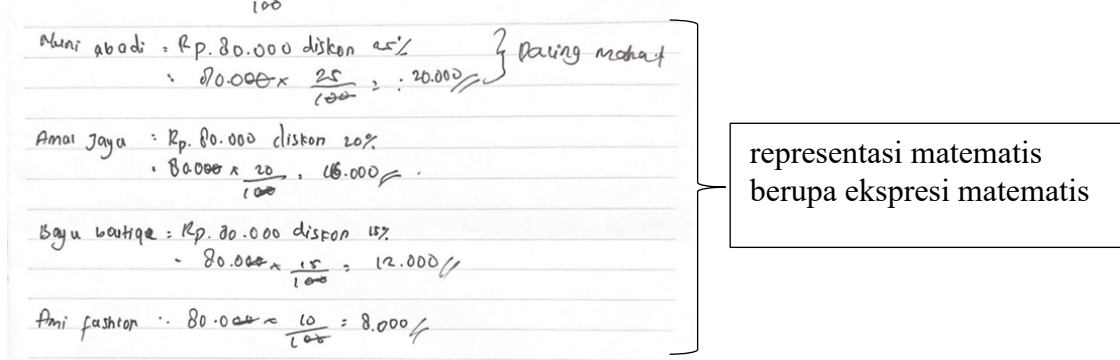 100
Nuni abadi : Rp. 80.000 diskon 25%
: 80.000 x 25/100 = : 20.000 } Paling mahal
Amal Jaya : Rp. 80.000 diskon 20%
: 80.000 x 20/100 : 16.000
Bayu boutiqe : Rp. 80.000 diskon 15%
- 80.000 x 15/100 = 12.000
Ami fashion : 80.000 x 10/100 = 8.000
representasi matematis
berupa ekspresi matematis